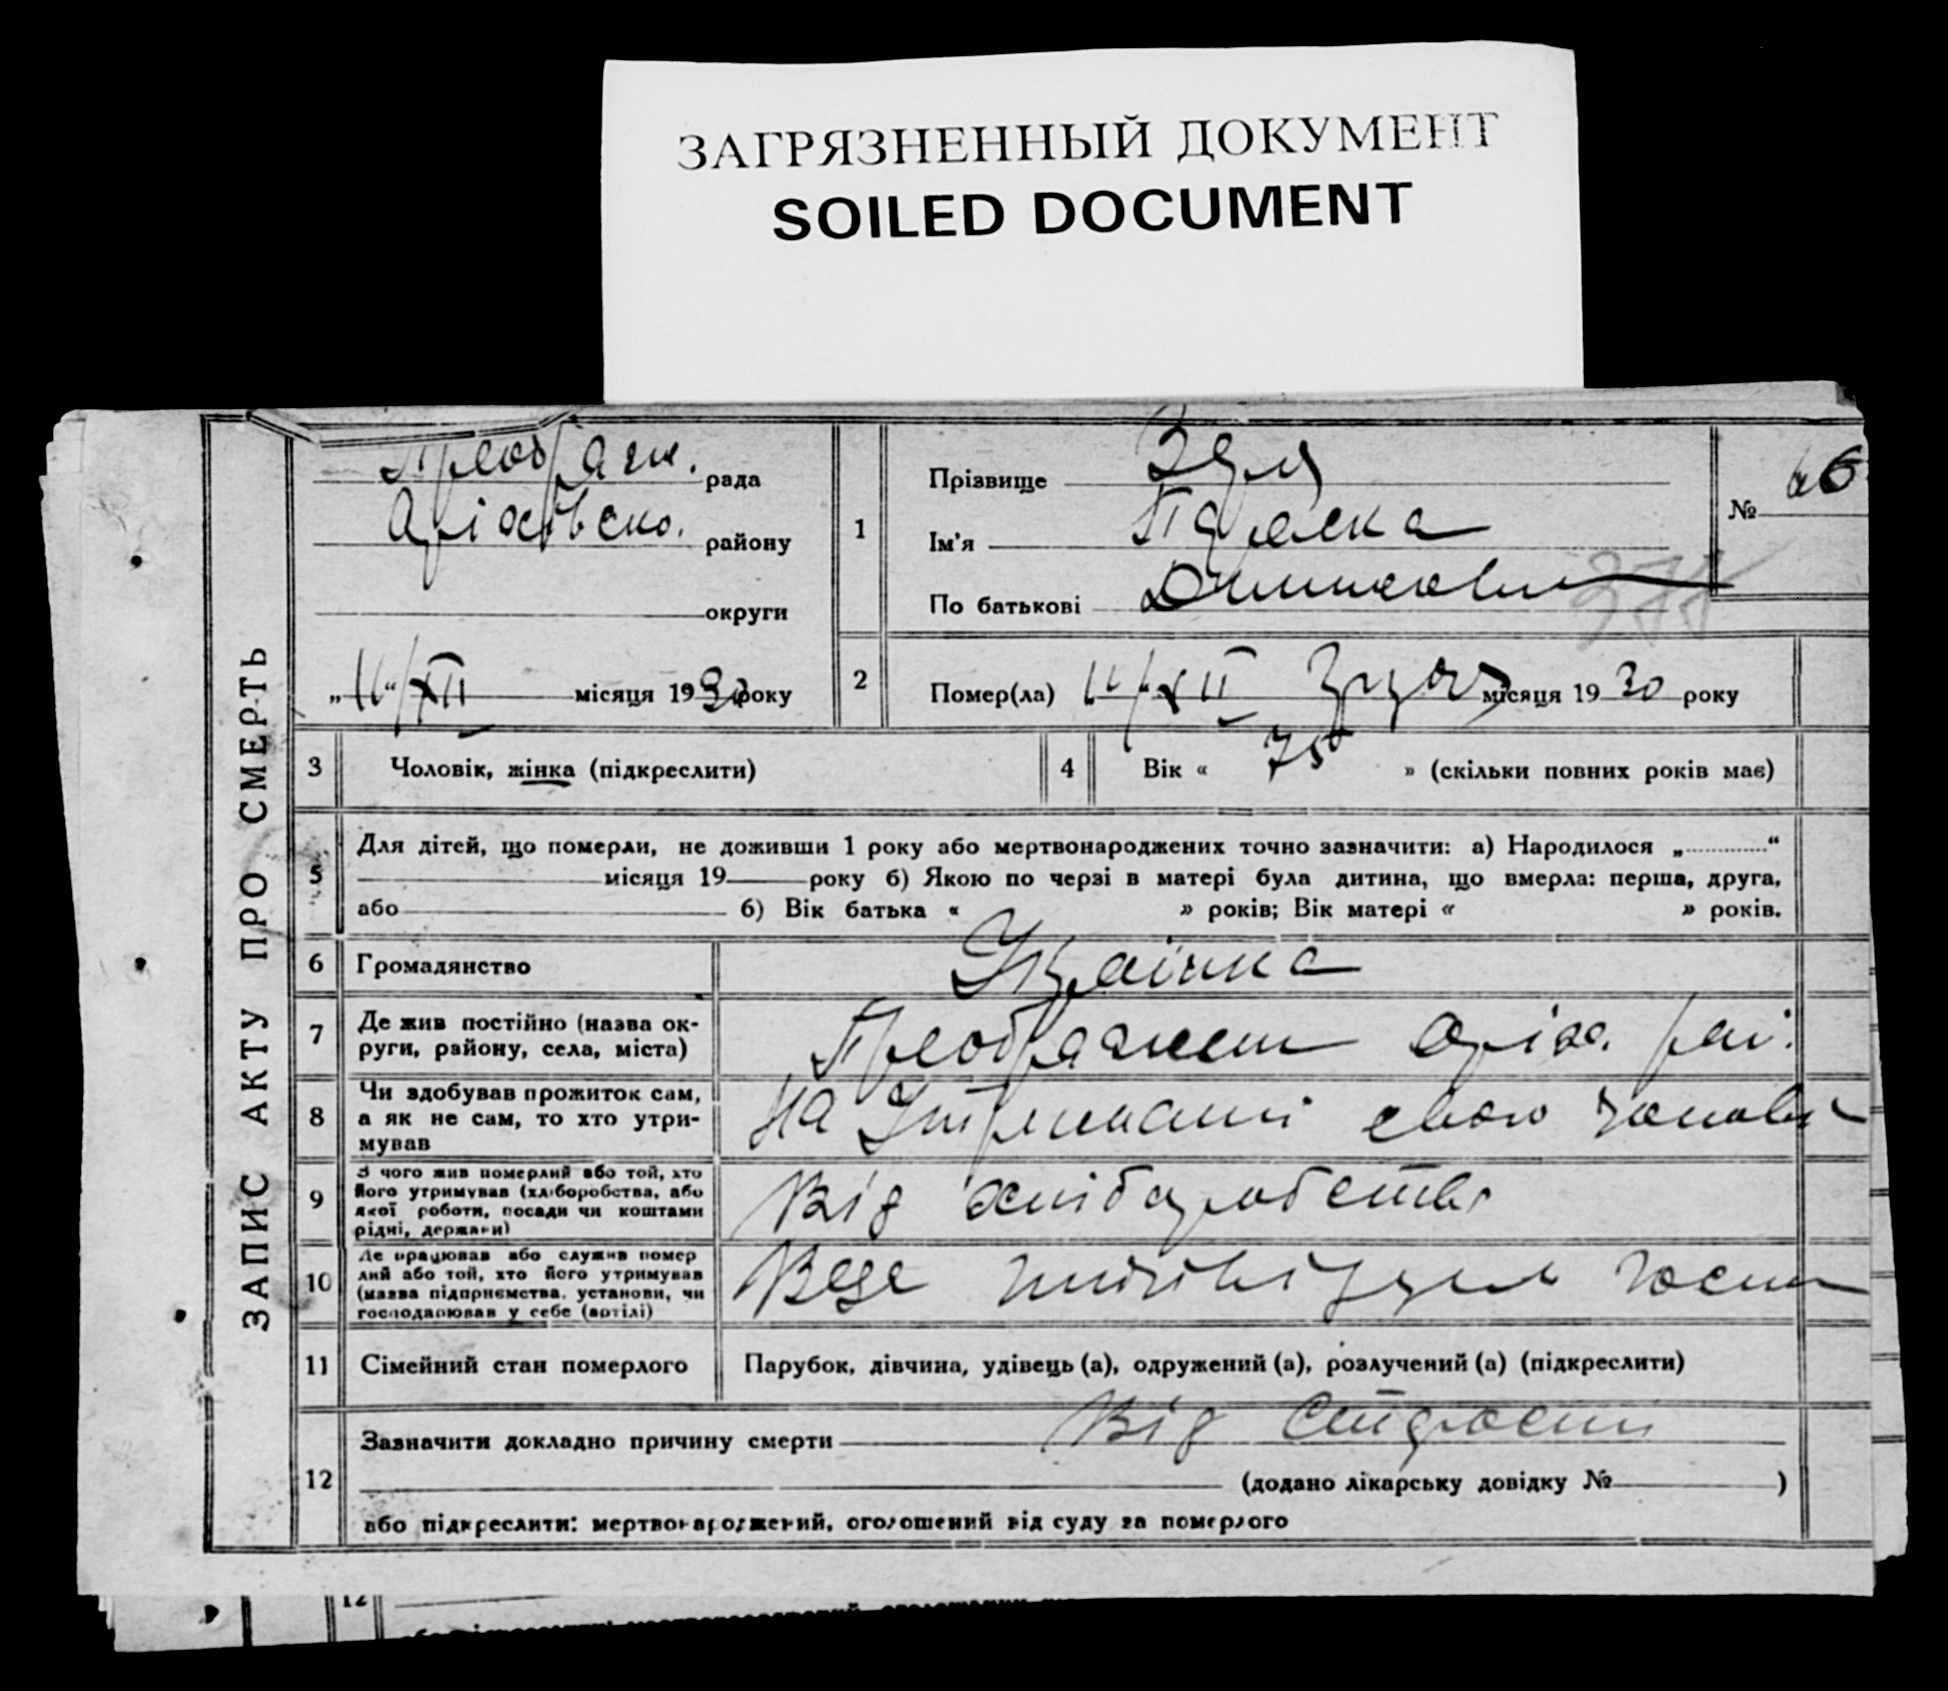 ЗАГРЯЗНЕННЫЙ ДОКУМЕНТ
SOILED DOCUMENT
ЗАПИС АКТУ ПРО СМЕРТЬ
Преображ. рада
Оріхівсько. району
округи
„11“/XII місяця 1930 року
1
Прізвище
Ім'я Параска
По батькові
№ 66
2
Помер(ла) 11/XII Грудня місяця 1930 року
3 Чоловік, жінка (підкреслити)
4 Вік « 75 » (скільки повних років має)
5 Для дітей, що померли, не доживши 1 року або мертвонароджених точно зазначити: а) Народилося „ “
місяця 19 року б) Якою по черзі в матері була дитина, що вмерла: перша, друга,
або б) Вік батька « » років; Вік матері « » років.
6 Громадянство Українка
7 Де жив постійно (назва ок-
руги, району, села, міста)
Преображен Оріх. рай.
8 Чи здобував прожиток сам,
а як не сам, то хто утри-
мував
На Утриманні свого чолові
9 З чого жив померлий або той, хто
його утримував (хліборобства, або
якої роботи, посади чи коштами
рідні, держави)
Від хліборобства
10 Де працював або служив помер
лий або той, хто його утримував
(назва підприємства, установи, чи
господарював у себе (артілі)
Веде госп
11 Сімейний стан померлого Парубок, дівчина, удівець (а), одружений (а), розлучений (а) (підкреслити)
12 Зазначити докладно причину смерти Від Старости
(додано лікарську довідку № )
або підкреслити: мертвонароджений, оголошений від суду за померлого
12